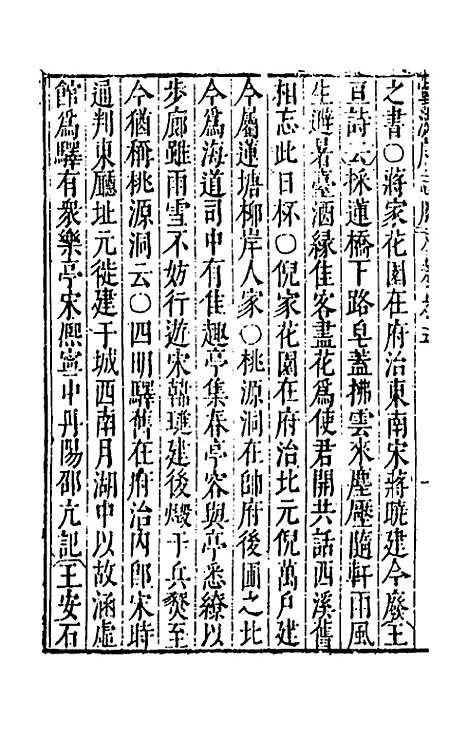 之書○蔣家花園在府治東南宋蔣曉建今廢王
亘詩云採蓮橋下路皂蓋拂雲來塵壓隨軒雨風
生避暑臺酒緣佳客盡花為使君開共話西溪舊
相忘此日杯○倪家花園在府治北元倪萬戶建
今屬蓮塘柳岸人家○桃源洞在帥府後圃之北
今為海道司中有佳趣亭集春亭容與亭悉繚以
步廊雖雨雪不妨行遊宋韓璡建後燬于兵燹至
今猶稱桃源洞云○四明驛舊在府治內郎宋時
通判東廳址元徙建于城西南月湖中以故涵虛
館為驛有衆樂亭宋熙寧中丹陽邵亢記王安石